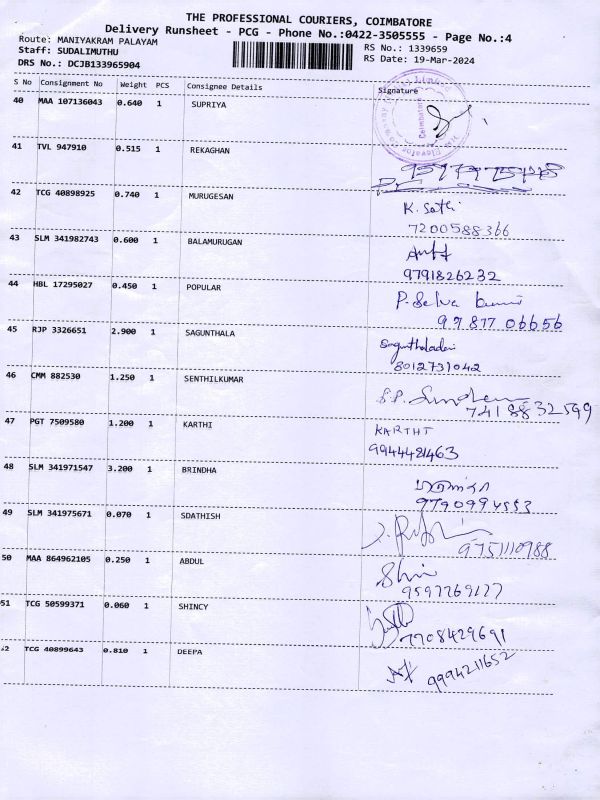 THE PROFESSIONAL COURIERS, COIMBATORE
Delivery Runsheet - PCG - Phone No.:0422-3505555 - Page No.:4
Route: MANIYAKRAM PALAYAM
RS No.: 1339659
Staff: SUDALIMUTHU
RS Date: 19-Mar-2024
DRS No.: DCJB133965904
S No Consignment No Weight PCS Consignee Details Signature
40 MAA 107136043 0.640 1 SUPRIYA
Coimbatore
41 TVL 947910 0.515 1 REKAGHAN
42 TCG 40898925 0.740 1 MURUGESAN
K. Sathi
7200588366
43 SLM 341982743 0.600 1 BALAMURUGAN
9791826232
44 HBL 17295027 0.450 1 POPULAR
P. Selva kumar
97877 06656
45 RJP 3326651 2.900 1 SAGUNTHALA
Sagunthaladevi
8012731042
46 CMM 882530 1.250 1 SENTHILKUMAR
7418832599
47 PGT 7509580 1.200 1 KARTHI
KARTHI
9944421463
48 SLM 341971547 3.200 1 BRINDHA
9790994553
49 SLM 341975671 0.070 1 SDATHISH
9751110988
50 MAA 864962105 0.250 1 ABDUL
9597269127
51 TCG 50599371 0.060 1 SHINCY
7708429691
52 TCG 40899643 0.810 1 DEEPA
9994211652